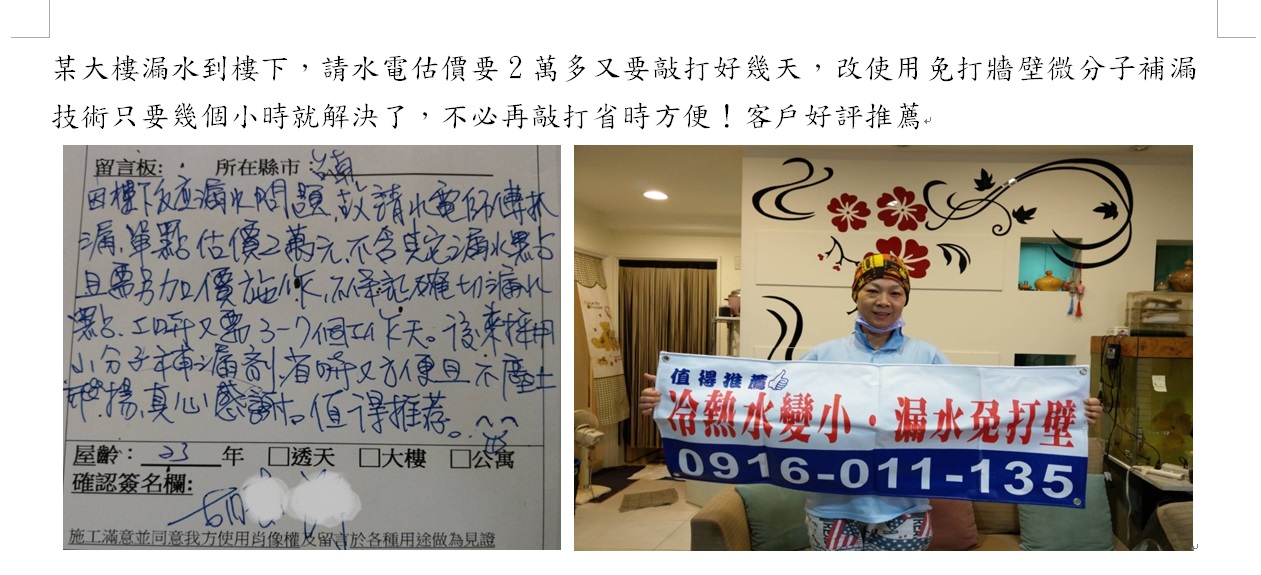 某大樓漏水到樓下，請水電估價要２萬多又要敲打好幾天，改使用免打牆壁微分子補漏
技術只要幾個小時就解決了，不必再敲打省時方便！客戶好評推薦
留言板: 所在縣市:
因樓下反應漏水問題,故請水電師傅抓
漏,單點估價2萬元,不含其它之漏水點
且需另加價施作,不保証確切漏水
點、工時又需3-7個工作天。後來採用
小分子補漏劑,省時又方便且不塵土
飛揚,真心感謝,值得推荐。^^
屋齡：23年 □透天 □大樓 □公寓
確認簽名欄:
施工滿意並同意我方使用肖像權及留言於各種用途做為見證
值得推薦
冷熱水變小・漏水免打壁
0916-011-135